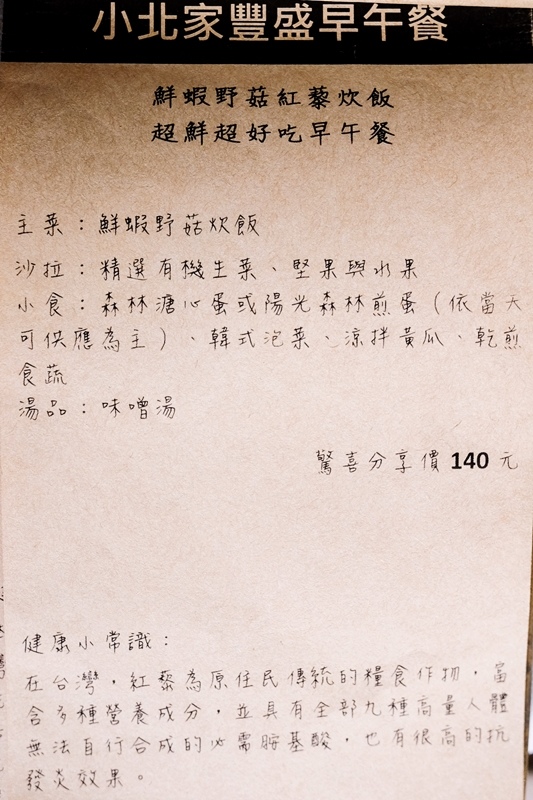 小北家豐盛早午餐
鮮蝦野菇紅藜炊飯
超鮮超好吃早午餐
主菜：鮮蝦野菇炊飯
沙拉：精選有機生菜、堅果與水果
小食：森林溏心蛋或陽光森林煎蛋（依當天
可供應為主）、韓式泡菜、涼拌黃瓜、乾煎
食蔬
湯品：味噌湯
驚喜分享價 140 元
健康小常識：
在台灣，紅藜為原住民傳統的糧食作物，富
含多種營養成分，並具有全部九種高量人體
無法自行合成的必需胺基酸，也有很高的抗
發炎效果。